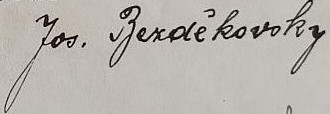 Jos. Bezděkovsky